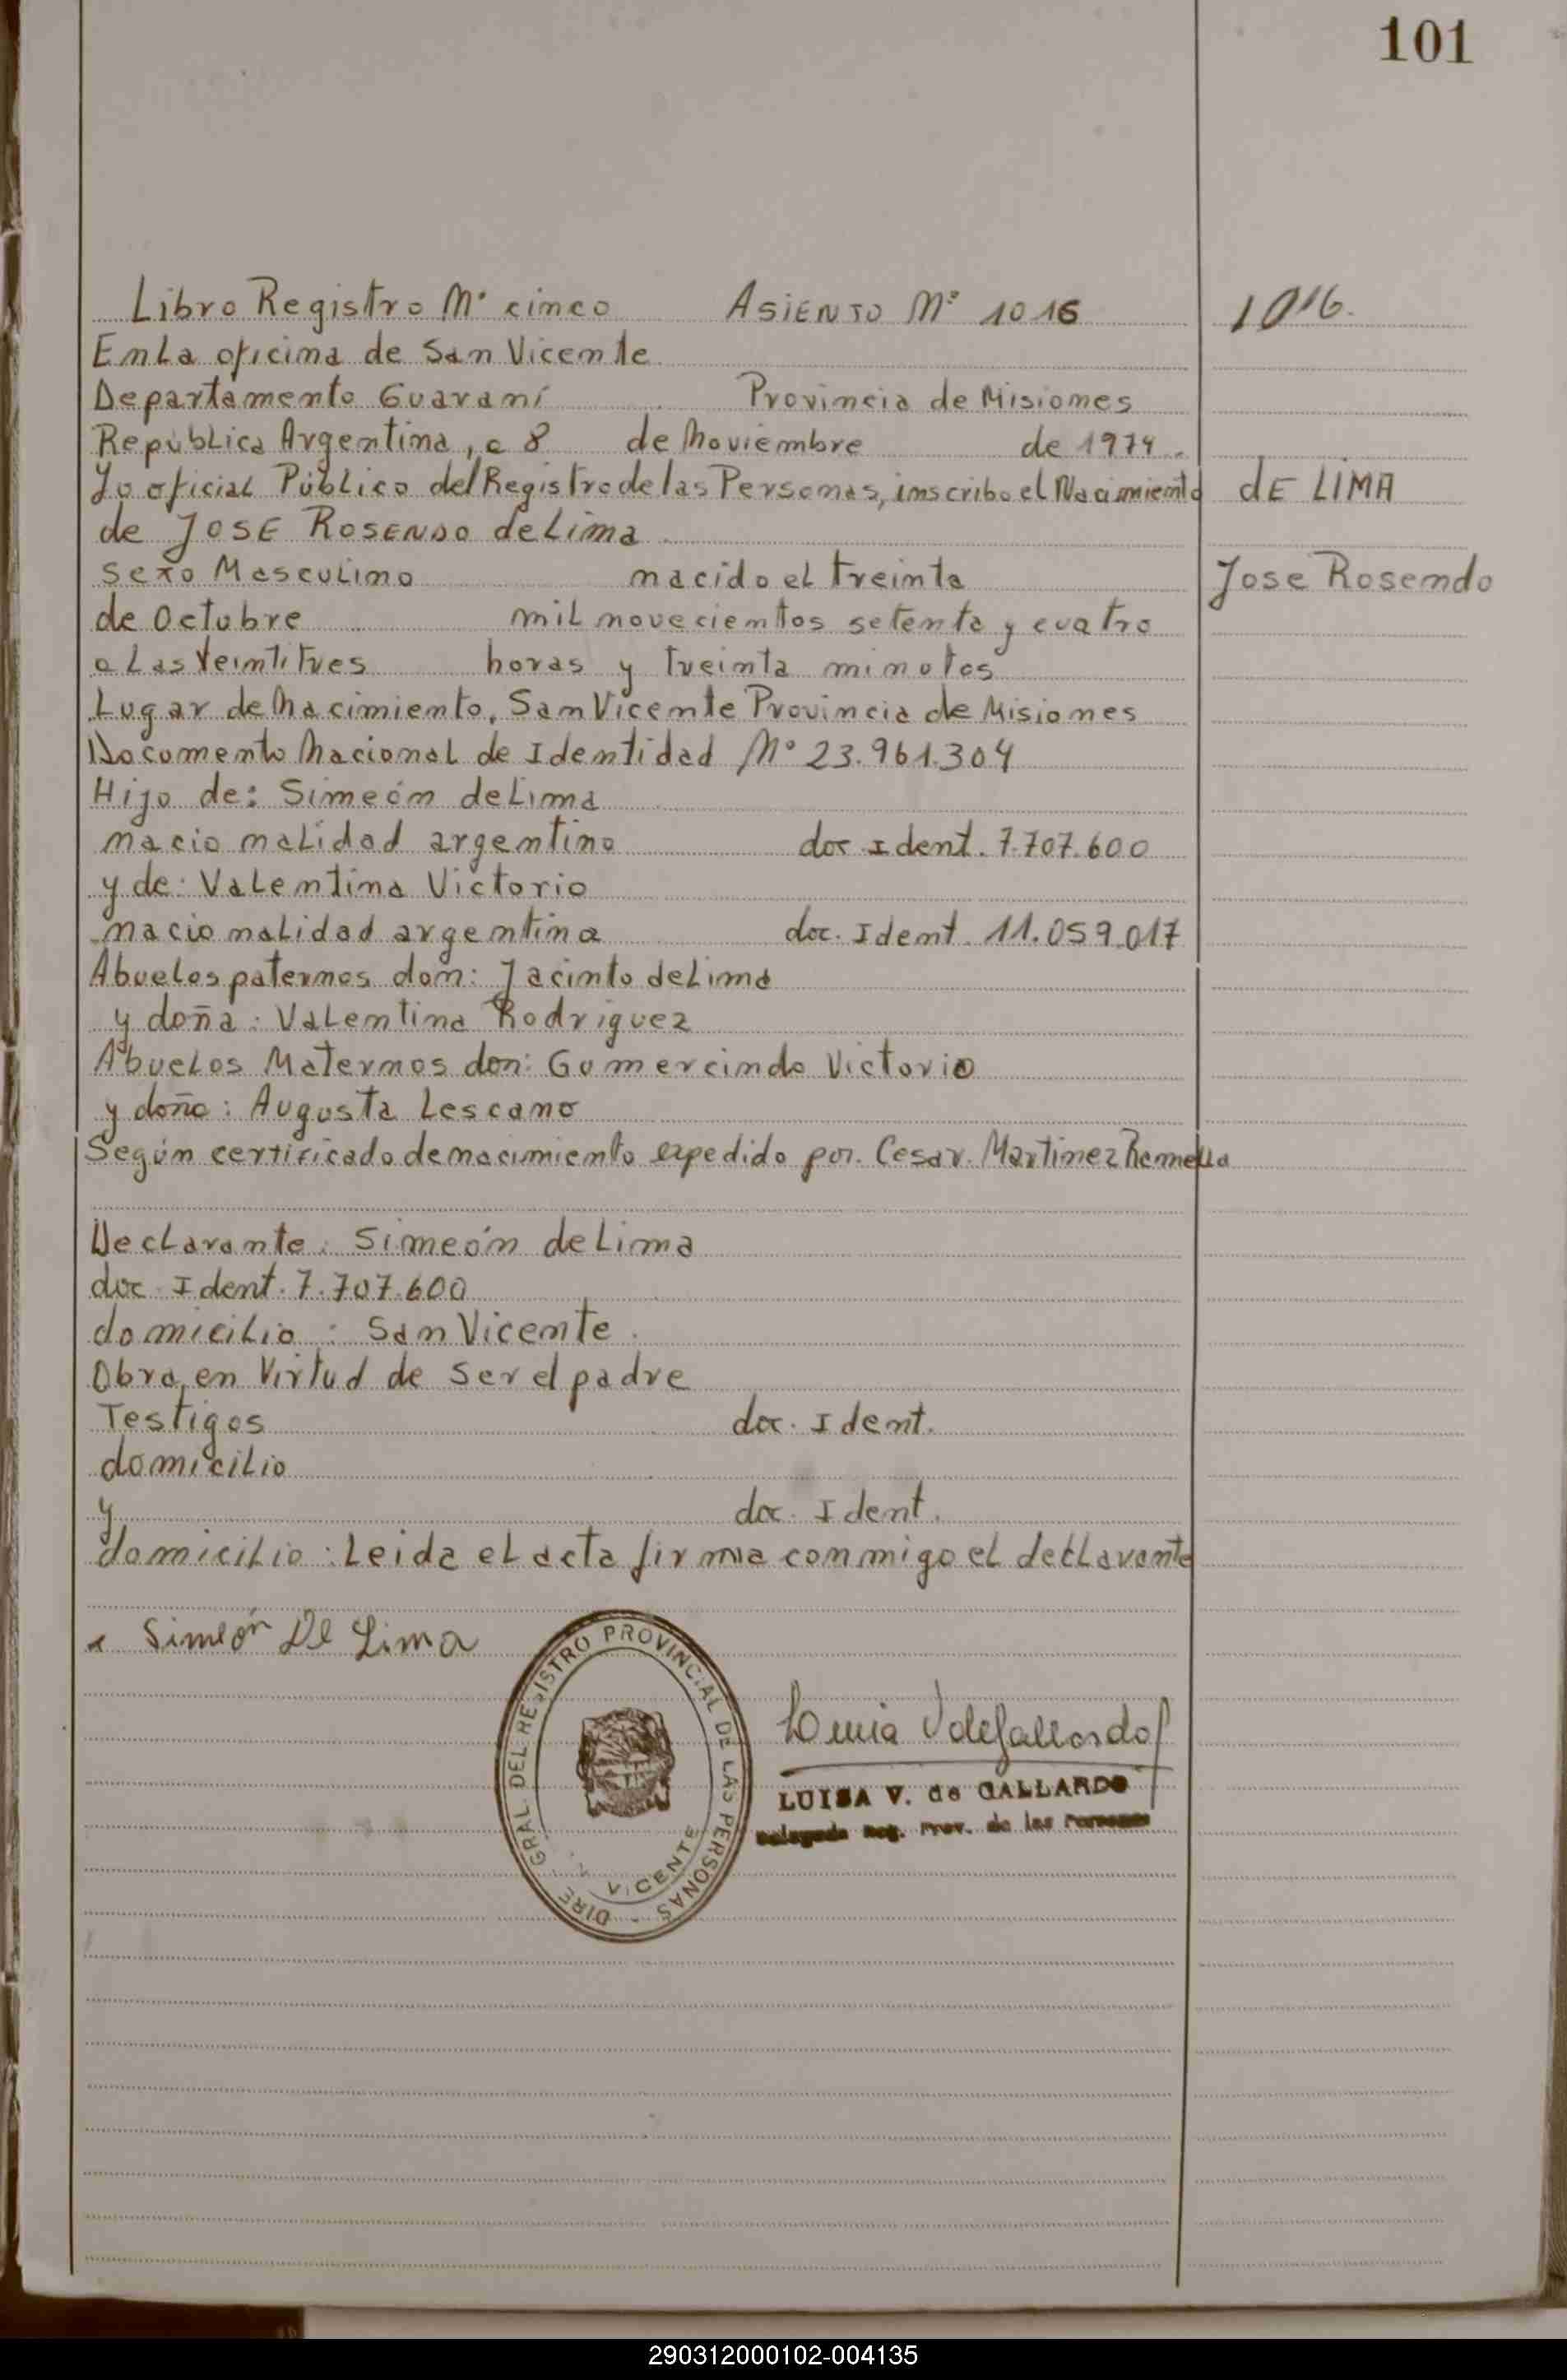 101
Libro Registro Nº cinco ASIENTO Nº 1016 1016.
En La oficina de San Vicente
Departamento Guaraní Provincia de Misiones
República Argentina, a 8 de Noviembre de 1974.
Yo oficial Público del Registro de las Personas, inscribo el Nacimiento dE LIMA
de JOSE ROSENDO de Lima
sexo Masculino nacido el treinta Jose Rosendo
de Octubre mil novecientos setenta y cuatro
a Las Veintitres horas y treinta minutos
Lugar de Nacimiento, San Vicente Provincia de Misiones
Documento Nacional de Identidad Nº 23.961.304
Hijo de: Simeón de Lima
nacionalidad argentino doc Ident. 7.707.600
y de: Valentina Victorio
nacionalidad argentina doc. Ident. 11.059.017
Abuelos paternos don: Jacinto de Lima
y doña: Valentina Rodriguez
Abuelos Maternos don: Gumercindo Victorio
y doña: Augusta Lescano
Según certificado de nacimiento expedido por. Cesar. Martinez
Declarante: Simeón de Lima
doc. Ident. 7.707.600
domicilio: San Vicente.
Obra, en Virtud de ser el padre
Testigos doc. Ident.
domicilio
y doc. Ident.
domicilio: Leida el acta firma conmigo el declarante
Simeón De Lima
DIRE. GRAL. DEL REGISTRO PROVINCIAL DE LAS PERSONAS
VICENTE
LUISA V. de GALLARDO
Delegada Reg. Prov. de las Personas
290312000102-004135